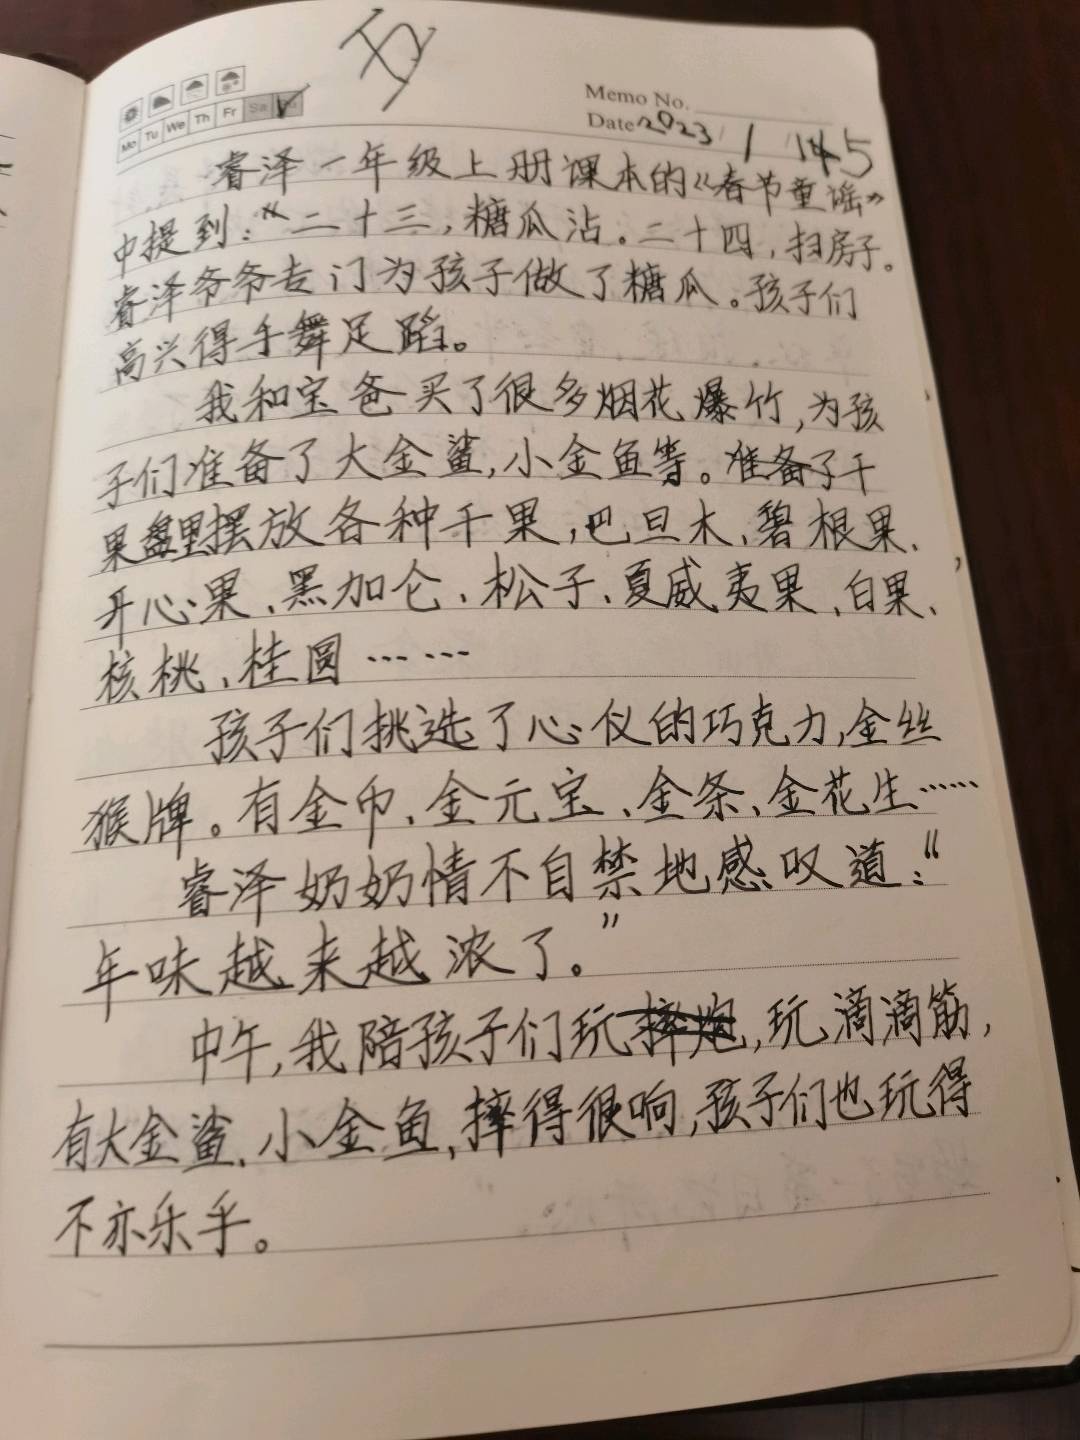 Memo No.
Mo Tu We Th Fr Sa Su
Date 2023/1/15
睿泽一年级上册课本的《春节童谣》
中提到：“二十三，糖瓜沾。二十四，扫房子。
睿泽爷爷专门为孩子做了糖瓜。孩子们
高兴得手舞足蹈。
我和宝爸买了很多烟花爆竹，为孩
子们准备了大金鲨，小金鱼等。准备了干
果盘里摆放各种干果，巴旦木、碧根果、
开心果、黑加仑、松子、夏威夷果、白果、
核桃、桂圆……
孩子们挑选了心仪的巧克力，金丝
猴牌。有金巾、金元宝、金条、金花生……
睿泽奶奶情不自禁地感叹道：“
年味越来越浓了。”
中午，我陪孩子们玩摔炮，玩滴滴筋，
有大金鲨、小金鱼，摔得很响，孩子们也玩得
不亦乐乎。